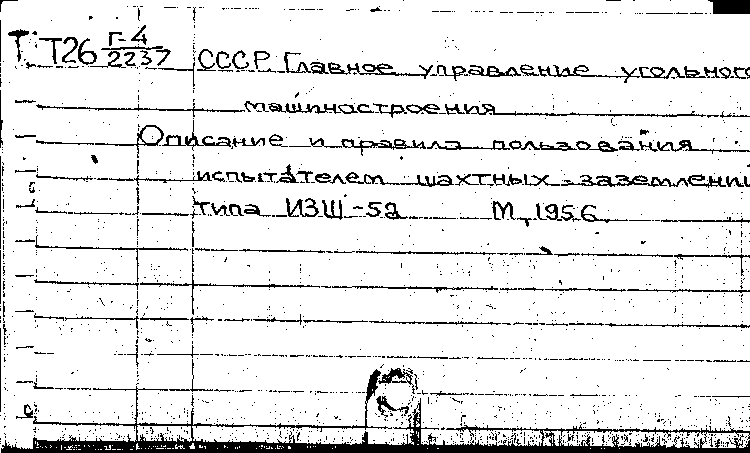 Т Т26 Г-4/2237 СССР. Главное управление угольного
машиностроения
Описание и правила пользования
испытателем шахтных заземлений
типа ИЗШ-52 М, 1956.